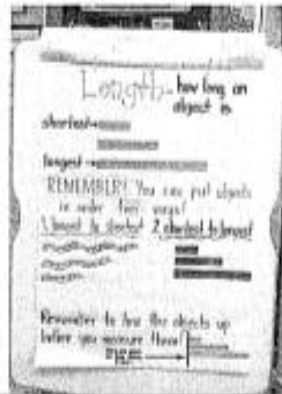 Length - how long an
object is
shortest→
longest→
REMEMBER! You can put objects
in order two ways!
1. longest to shortest 2. shortest to longest
Remember to line the objects up
before you measure them!